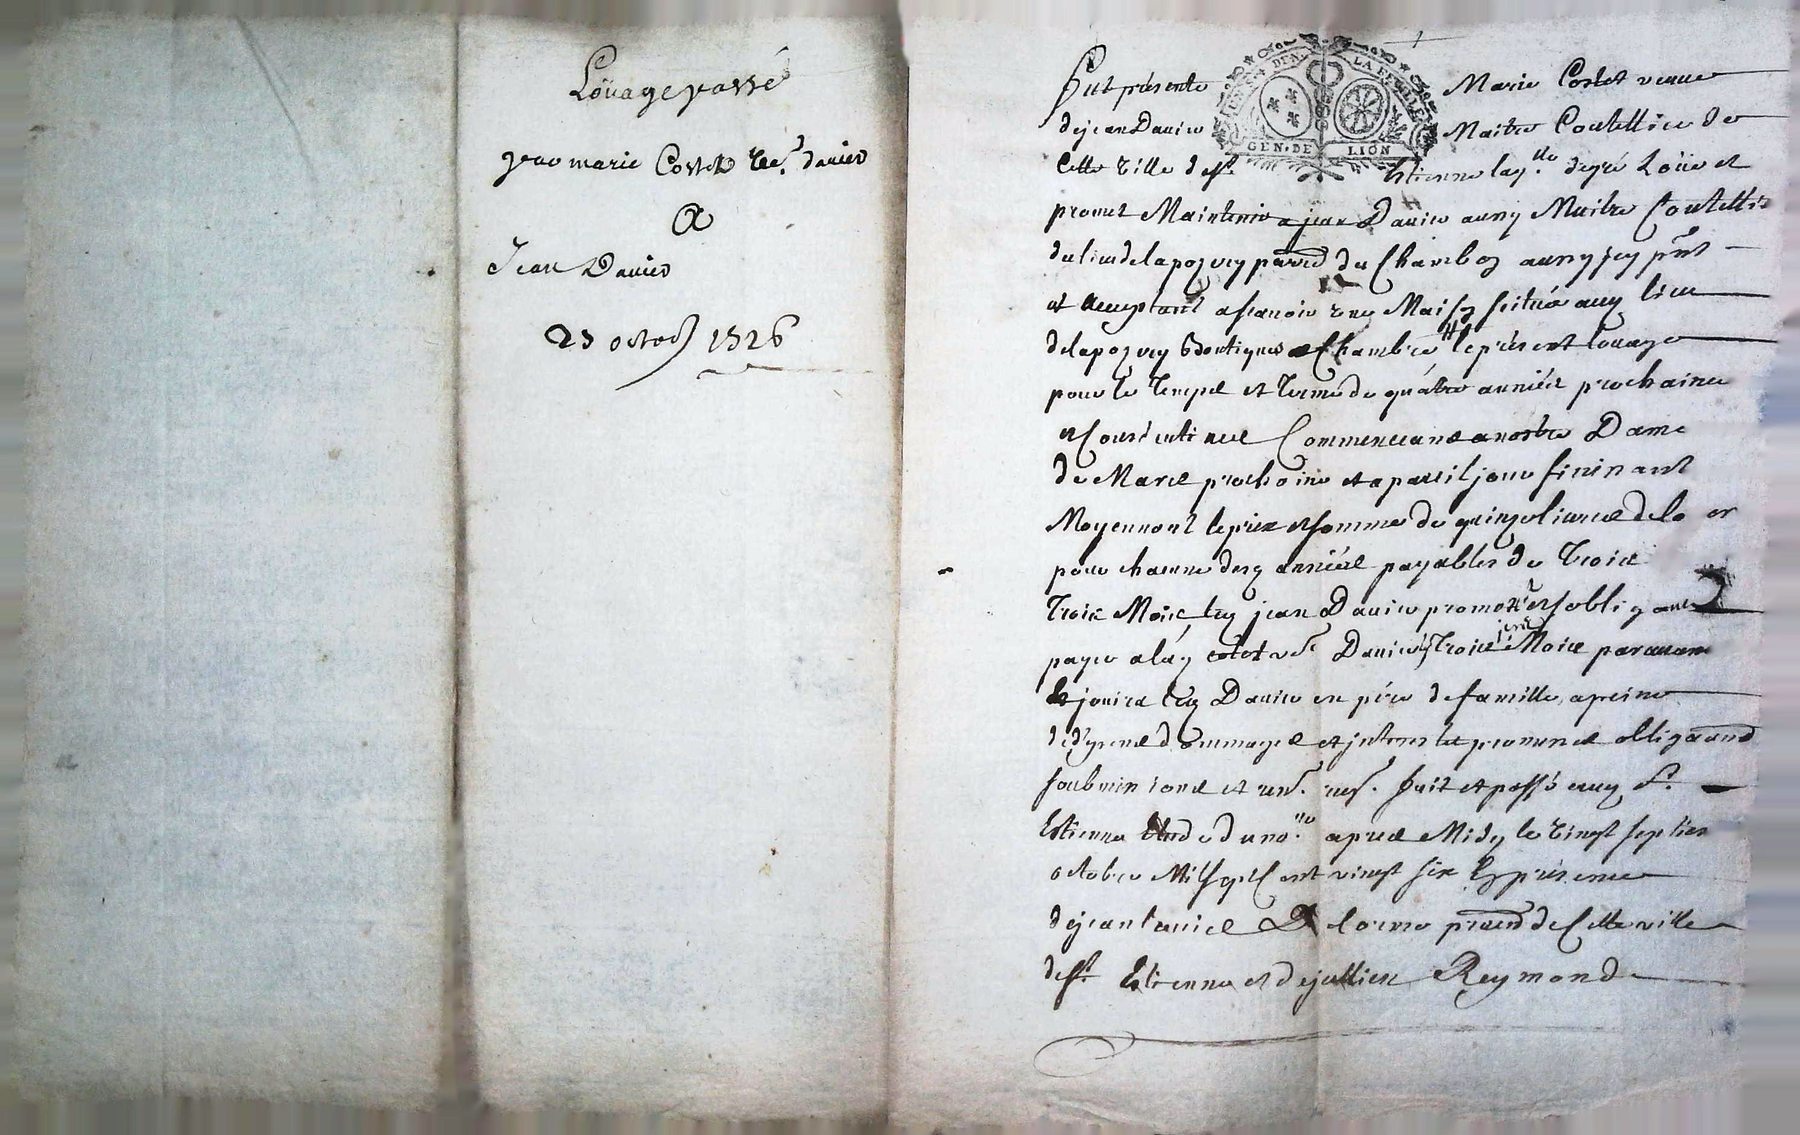 Loüage passé
par marie Costet veu.^e davier
A
Jean Davier
23 octob 1726
Fut présente Marie Costet veuve
de jean Davier Maitre Coutellier de
Cette ville de S^t Estienne laq.^lle de gré Loüe et
promet Maintenir a jean Davier aussy Maitre Coutellier
du lieu de la parr^e du Chambon aussy jcy p^nt
et acceptant ascavoir une Maison scituée aud lieu
de la boutiques et Chambre le présent louage
pour le temps et terme de quátre années prochaines
et Consécutives Commencans a nostre Dame
de Mars prochaine et a pareil jour finissant
Moyennant le prix et somme de quinze livres de lo er
pour chacune desd années payables de trois
trois Mois led jean Davier promet et s'obligeant
payer a lad costet v^e Davier trois Mois par avance
et jouira led Davier en pére de famille, a peine
de dépens dommages et jnterests promesses obligaōns
soubmissions et ren.^s Fait et passé aud S.^t
Estienne Etude du no.^re apres Midy le vingt sept
octobre Mil sept Cent vingt six En présence
de jean Delorme de Cette ville
de S^t Estienne et de jullien Reymond
GEN. DE LION
LA FEUILLE